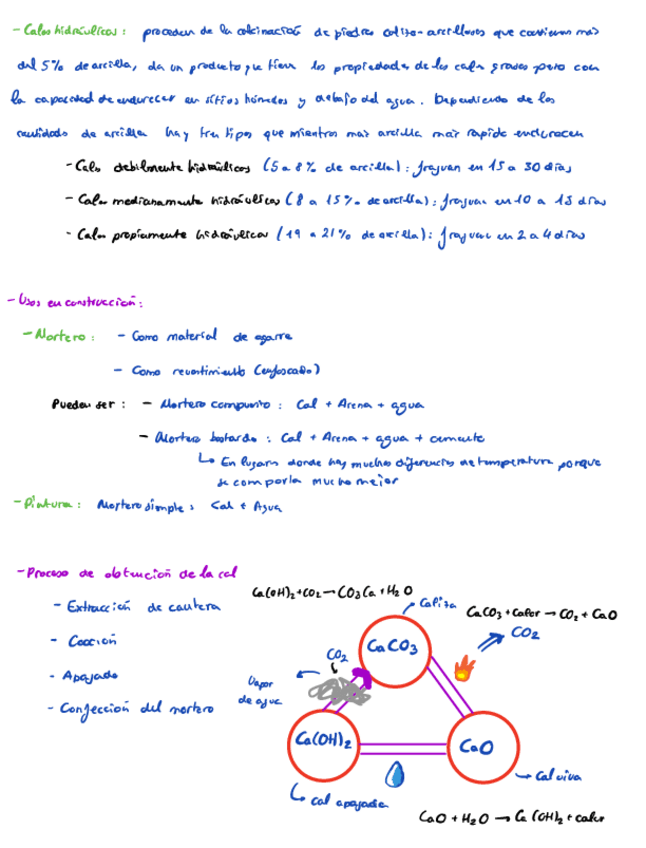 - Cales hidráulicas: proceden de la calcinación de piedras calizo-arcillosas que contienen más
del 5% de arcilla, da un producto que tiene las propiedades de las cales grasas pero con
la capacidad de endurecer en sitios húmedos y debajo del agua. Dependiendo de las
cantidades de arcilla hay tres tipos que mientras mas arcilla mas rapido endurecen
- Cales debilmente hidráulicas (5 a 8% de arcilla): fraguan en 15 a 30 días
- Cales medianamente hidráulicas (8 a 15% de arcilla): fraguan en 10 a 15 días
- Cales propiamente hidráulicas (19 a 21% de arcilla): fraguan en 2 a 4 días
- Usos en construcción:
- Mortero: - Como material de agarre
- Como revestimiento (enfoscado)
Pueden ser: - Mortero compuesto: Cal + Arena + agua
- Mortero bastardo: Cal + Arena + agua + cemento
↳ En lugares donde hay muchas diferencias de temperatura porque
se comporta mucho mejor
- Pintura: Mortero simple: Cal + Agua
- Proceso de obtención de la cal
- Extracción de cantera
- Cocción
- Apagado
- Confección del mortero
Ca(OH)₂ + CO₂ → CO₃Ca + H₂O
Caliza
CaCO₃ + Calor → CO₂ + CaO
CO₂
CaCO₃
CO₂
Vapor
de agua
Ca(OH)₂
CaO
Cal viva
cal apagada
CaO + H₂O → Ca(OH)₂ + calor